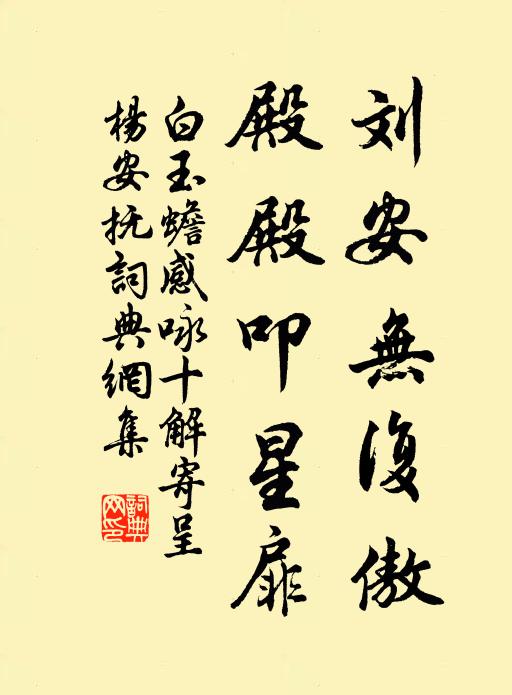 刘安無復傲
殿殿叩星扉
白玉蟾感咏十解寄呈
楊安抚詞典網集
詞典网印